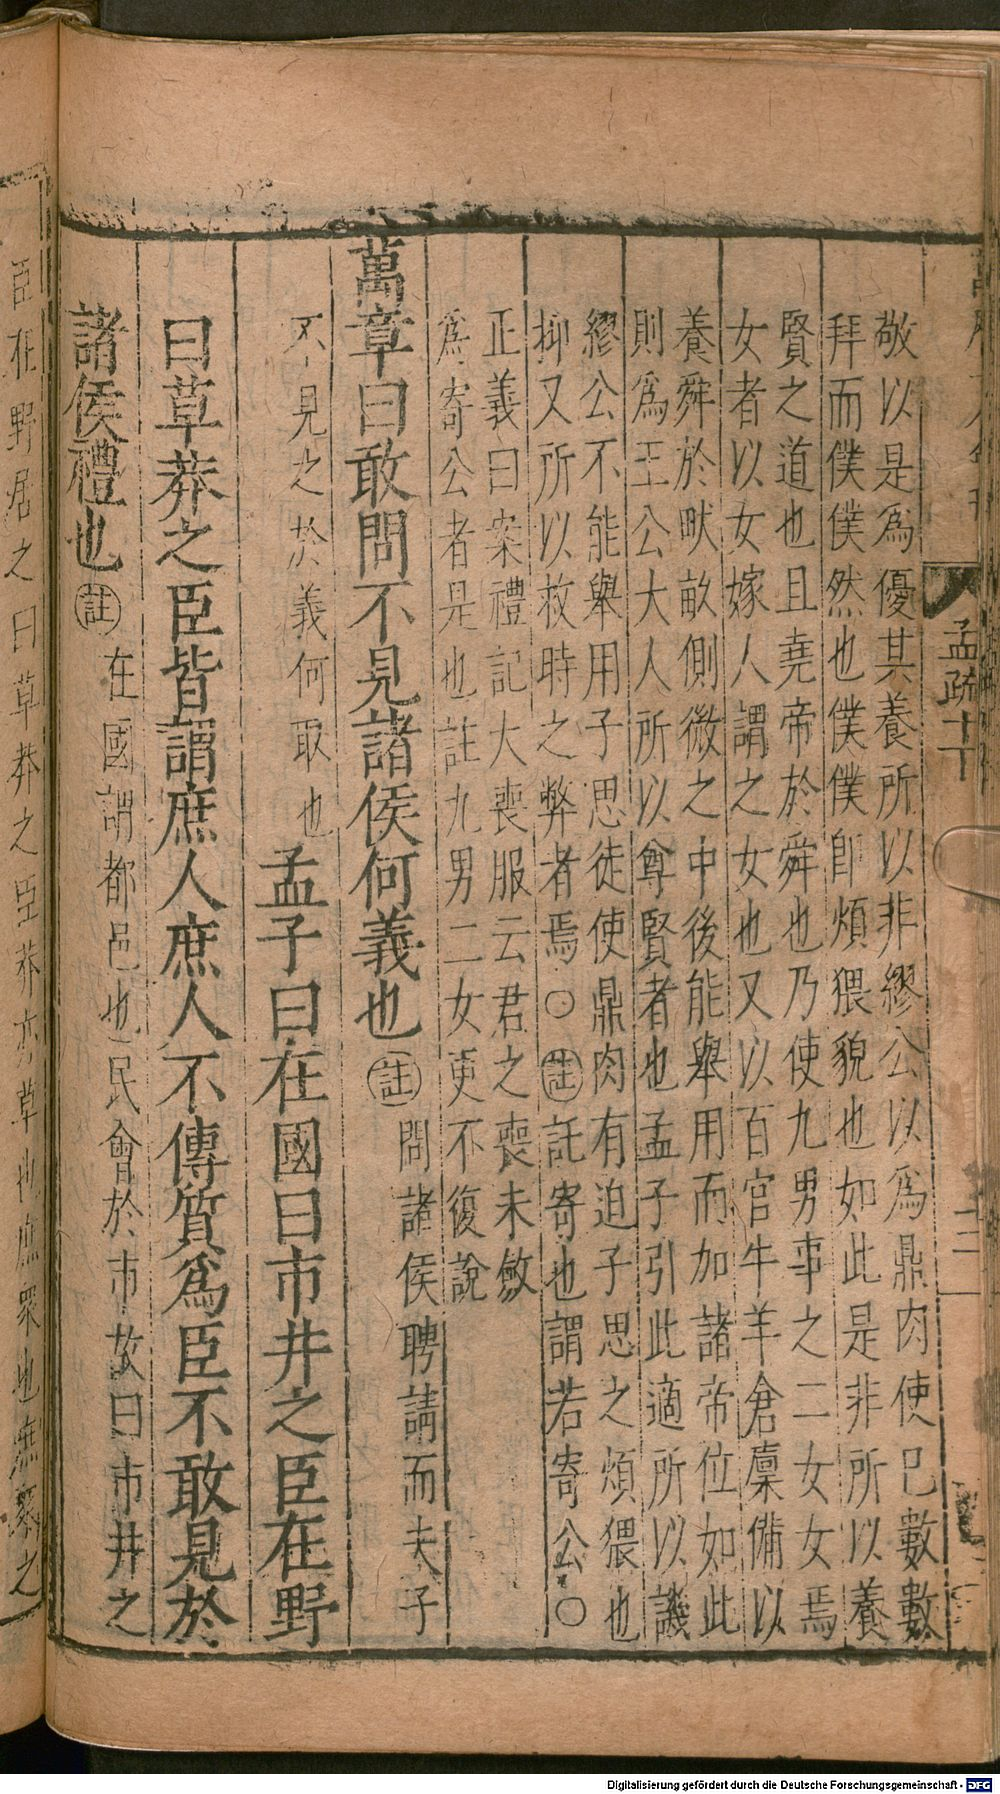 孟疏十下
敬以是爲優其養所以非繆公以爲鼎肉使巳數數
拜而僕僕然也僕僕卽煩猥貌也如此是非所以養
賢之道也且堯帝於舜也乃使九男事之二女女焉
女者以女嫁人謂之女也又以百官牛羊倉廩備以
養舜於畎畝側微之中後能舉用而加諸帝位如此
則爲王公大人所以尊賢者也孟子引此適所以譏
繆公不能舉用子思徒使鼎肉有迫子思之煩猥也
抑又所以救時之弊者焉○註託寄也謂若寄公○
正義曰案禮記大喪服云君之喪未斂
爲寄公者是也註九男二女更不復說
萬章曰敢問不見諸侯何義也註問諸侯聘請而夫子
不見之於義何取也孟子曰在國曰市井之臣在野
曰草莽之臣皆謂庶人庶人不傳質爲臣不敢見於
諸侯禮也註在國謂都邑也民會於市故曰市井之
臣在野居之曰草莽之臣莽亦草也庶衆也庶衆之
Digitalisierung gefördert durch die Deutsche Forschungsgemeinschaft - DFG